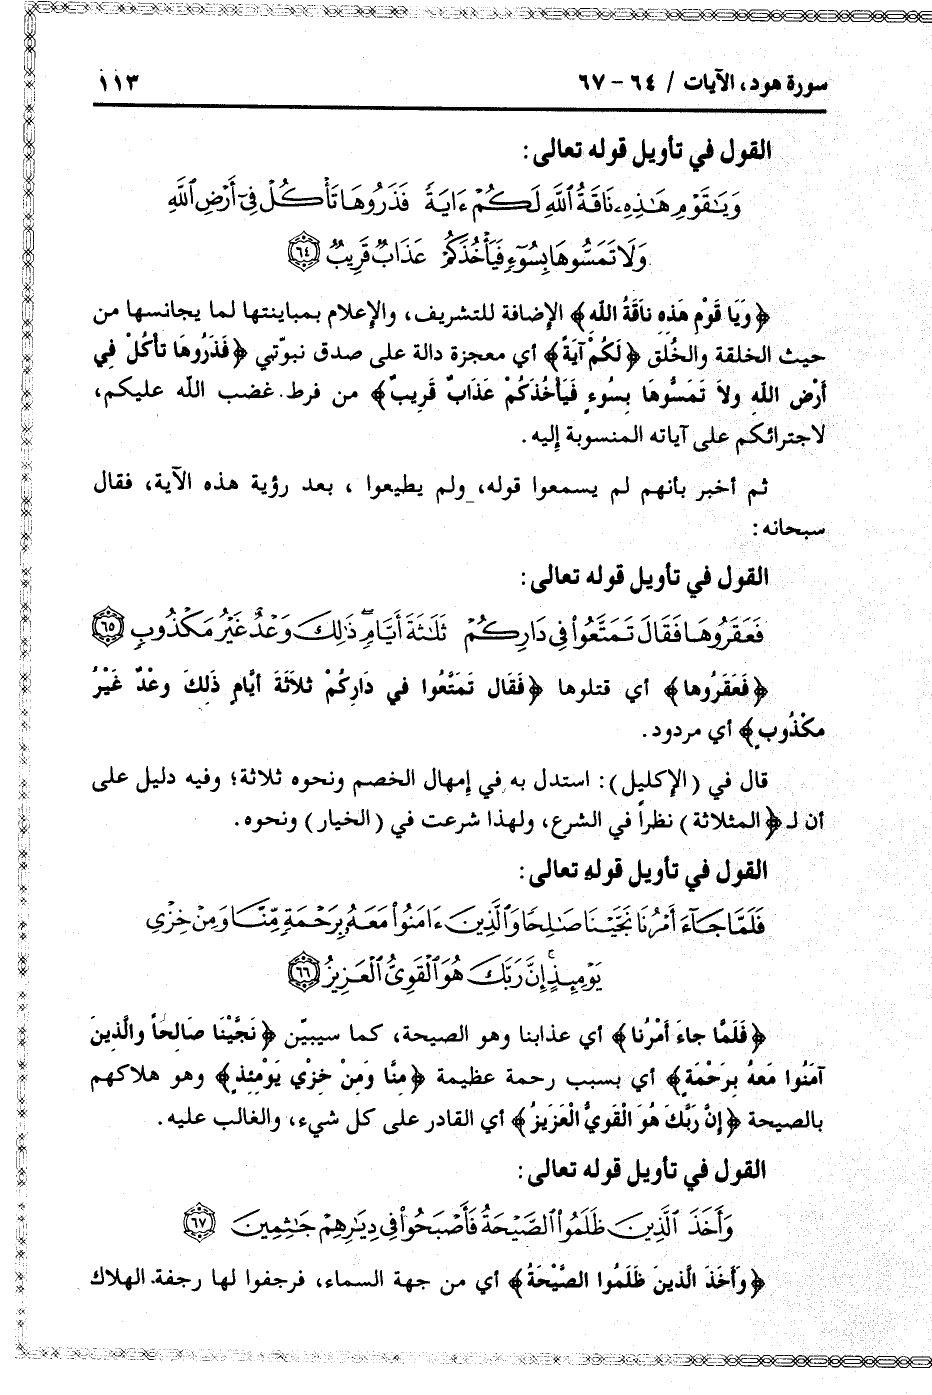 سورة هود، الآيات / ٦٤ - ٦٧
١١٣
القول في تأويل قوله تعالى:
وَيَٰقَوْمِ هَٰذِهِۦ نَاقَةُ ٱللَّهِ لَكُمْ ءَايَةً فَذَرُوهَا تَأْكُلْ فِىٓ أَرْضِ ٱللَّهِ
وَلَا تَمَسُّوهَا بِسُوٓءٍ فَيَأْخُذَكُمْ عَذَابٌ قَرِيبٌ ٦٤
﴿وَيَا قَوْمِ هَذِهِ نَاقَةُ اللَّهِ﴾ الإضافة للتشريف، والإعلام بمباينتها لما يجانسها من
حيث الخلقة والخُلق ﴿لَكُمْ آيَةً﴾ أي معجزة دالة على صدق نبوّتي ﴿فَذَرُوهَا تَأْكُلْ فِي
أَرْضِ اللَّهِ ولاَ تَمَسُّوهَا بِسُوءٍ فَيَأْخُذَكُمْ عَذَابٌ قَرِيبٌ﴾ من فرط غضب اللّه عليكم،
لاجترائكم على آياته المنسوبة إليه.
ثم أخبر بأنهم لم يسمعوا قوله، ولم يطيعوا ، بعد رؤية هذه الآية، فقال
سبحانه:
القول في تأويل قوله تعالى:
فَعَقَرُوهَا فَقَالَ تَمَتَّعُوا۟ فِى دَارِكُمْ ثَلَٰثَةَ أَيَّامٍ ۖ ذَٰلِكَ وَعْدٌ غَيْرُ مَكْذُوبٍ ٦٥
﴿فَعَقَرُوها﴾ أي قتلوها ﴿فَقَال تَمَتَّعُوا في دَارِكُمْ ثلاَثَةَ أيَّامٍ ذَلِكَ وعْدٌ غَيْرُ
مكْذُوبٍ﴾ أي مردود.
قال في (الإكليل): استدل به في إمهال الخصم ونحوه ثلاثة؛ وفيه دليل على
أن لـ ﴿المثلاثة) نظراً في الشرع، ولهذا شرعت في (الخيار) ونحوه.
القول في تأويل قوله تعالى:
فَلَمَّا جَآءَ أَمْرُنَا نَجَّيْنَا صَٰلِحًا وَٱلَّذِينَ ءَامَنُوا۟ مَعَهُۥ بِرَحْمَةٍ مِّنَّا وَمِنْ خِزْىِ
يَوْمِئِذٍ ۗ إِنَّ رَبَّكَ هُوَ ٱلْقَوِىُّ ٱلْعَزِيزُ ٦٦
﴿فَلَمَّا جاءَ أَمْرُنا﴾ أي عذابنا وهو الصيحة، كما سيبيّن ﴿نَجَّيْنَا صَالِحَاً والَّذِينَ
آمَنُوا مَعَهُ بِرَحْمَةٍ﴾ أي بسبب رحمة عظيمة ﴿مِنَّا وَمِنْ خزْيِ يَوْمِئِذٍ﴾ وهو هلاكهم
بالصيحة ﴿إِنَّ رَبَّكَ هُوَ الْقَوِيُّ الْعَزِيزُ﴾ أي القادر على كل شيء، والغالب عليه.
القول في تأويل قوله تعالى:
وَأَخَذَ ٱلَّذِينَ ظَلَمُوا۟ ٱلصَّيْحَةُ فَأَصْبَحُوا۟ فِى دِيَٰرِهِمْ جَٰثِمِينَ ٦٧
﴿وَأَخَذَ الَّذِينَ ظَلَمُوا الصَّيْحَةُ﴾ أي من جهة السماء، فرجفوا لها رجفة الهلاك